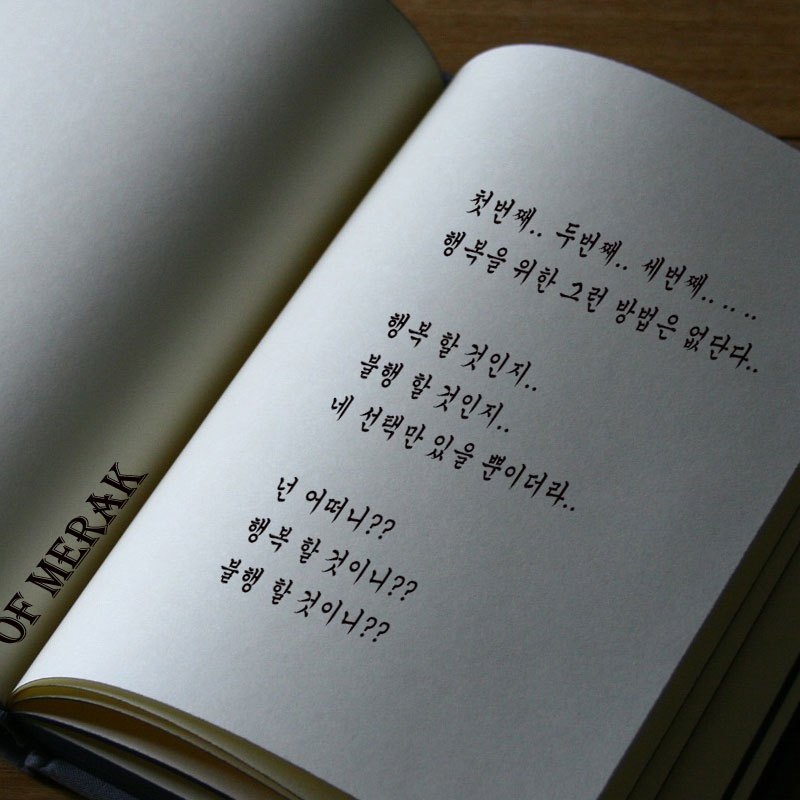 첫번째.. 두번째.. 세번째.. .. ..
행복을 위한 그런 방법은 없단다..
행복 할 것인지..
불행 할 것인지..
네 선택만 있을 뿐이더라..
넌 어떠니??
행복 할 것이니??
불행 할 것이니??
OF MERAK